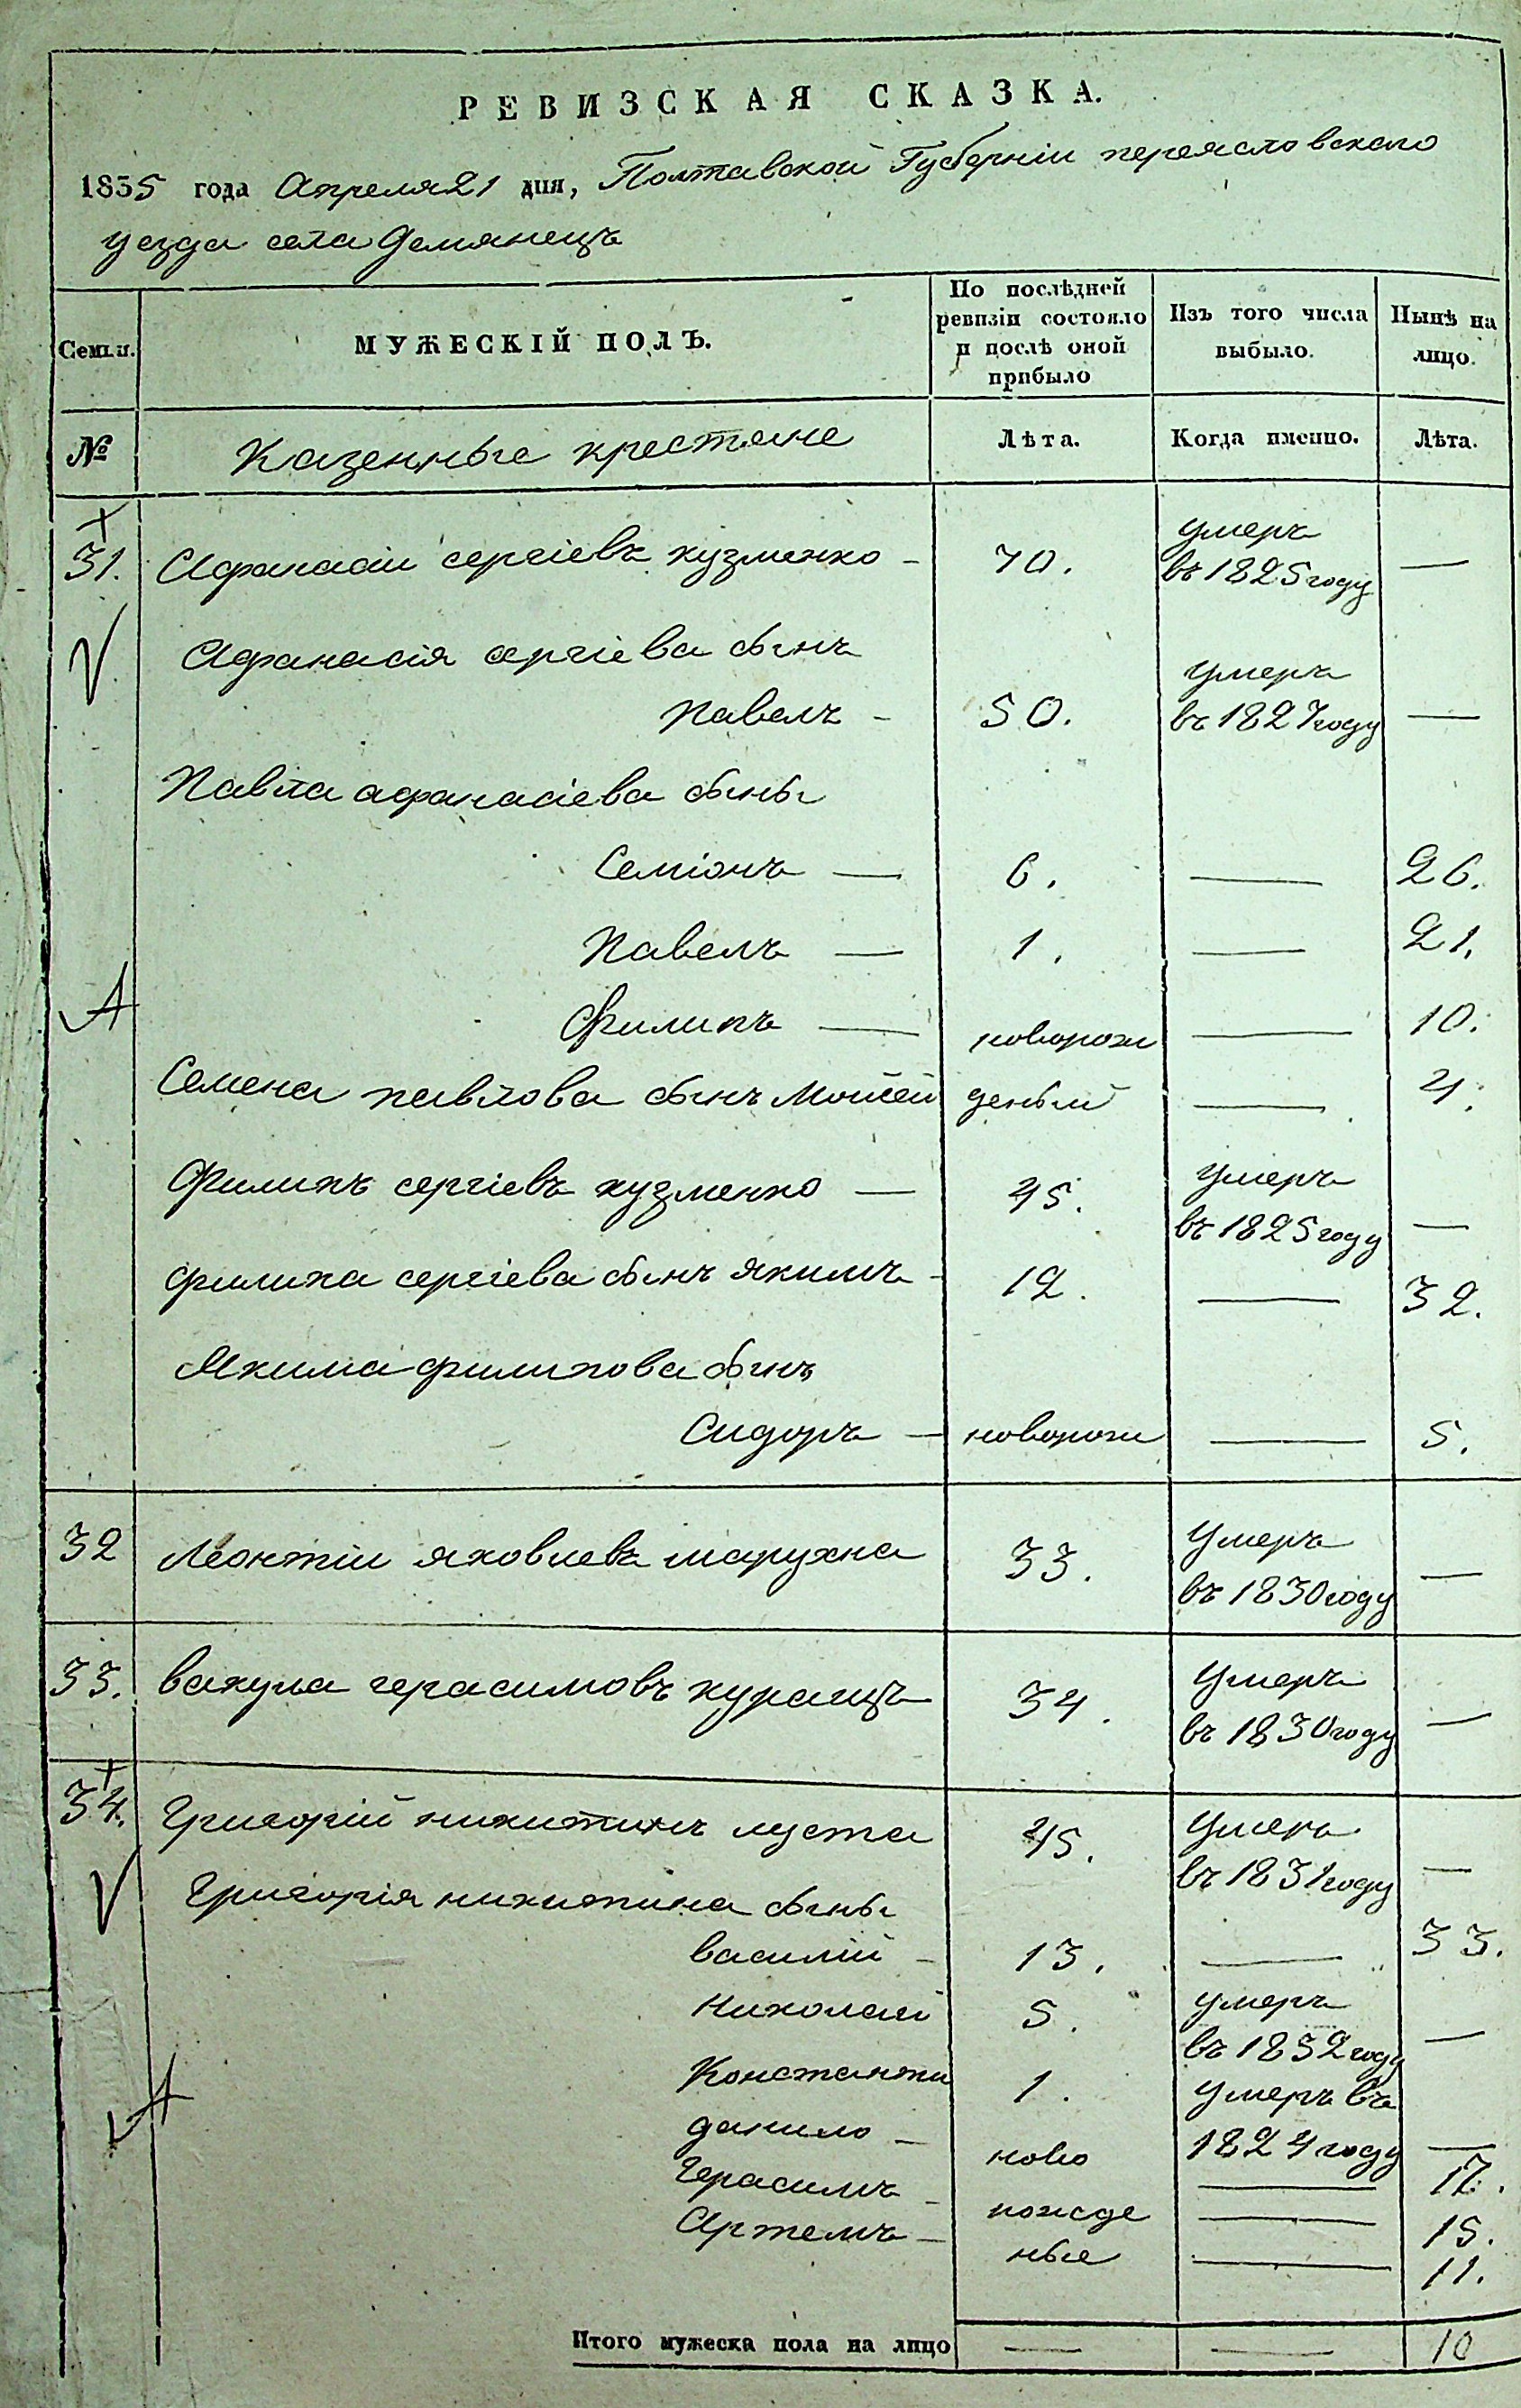 РЕВИЗСКАЯ СКАЗКА.
1835 года Апреля 21 дня, Полтавской Губерніи переясловского
уезда села Демянецъ
Семьи. МУЖЕСКІЙ ПОЛЪ. По послѣдней ревизіи состояло и послѣ оной прибыло Изъ того числа выбыло. Нынѣ на лицо.
№ Казенные крестяне Лѣта. Когда именно. Лѣта.
31. Афанасіи сергіевъ кузменко - 70. умеръ въ 1825 году —
Афанасія сергіева сынъ
Павелъ - 50. умеръ въ 1827 году —
Павла афанасіева сыны
Семіонъ — 6. — 26.
Павелъ — 1. — 21.
А Филипъ — новорож — 10.
Семена павлова сынъ Моисей деныи — 4.
Филипъ сергіевъ кузменко — 45. умеръ въ 1825 году —
филипа сергіева сынъ якимъ - 12. — 32.
Якима филипова сынъ
Сидоръ — новорож — 5.
32 Леонтіи яковлевъ марухна 33. умеръ въ 1830 году —
33. вакула герасимовъ курапцъ 34. умеръ въ 1830 году —
34. Григорій никитинъ луста 45. умеръ въ 1831 году —
Григорія никитина сыны
василій - 13. — 33.
Николай 5. умеръ въ 1832 году —
Константи 1. умеръ въ 1824 году —
данило - ново — 17.
Герасимъ - рожде — 15.
Артемъ - ные — 11.
Итого мужеска пола на лицо — — 10